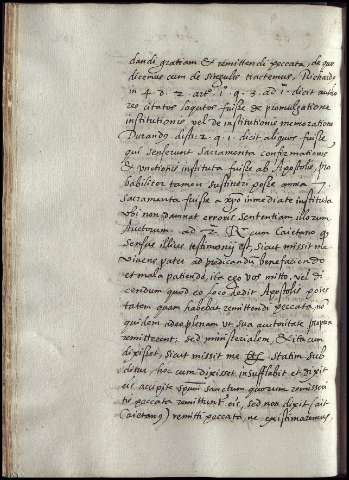 dandi gratiam et remittendi peccata, de quo
dicemus cum de singulis tractemus, Richardo
in 4. d. 2. art. 1. q. 3. ad 1. dicit
res citatos loqutos fuisse de promulgatione
institutionis vel de institutionis
Durando dist. 2. q. 1. dicit aliquos fuisse
qui senserunt Sacramenta confirmationis
et unctionis instituta fuisse ab Apostolis, pro
babilior tamen sustineri posse omnia 7.
sacramenta fuisse a xpo inmediate instituta
ubi non damnat erroris sententiam illorum
Auctorum. ad cum Caietano
sensus illius testimonij est, sicut missit me
vivens pater ad predicandu benefaciendo
et mala patiendo, ita ego vos mitto, vel di
cendum quod eo loco dedit Apostolis potes
tatem quam habebat remittendi peccata, no
quidem ut sua autoritate propria
remitterent: sed ministerialem, et ita cum
dixisset, sicut missit me statim sub
ditur, hoc cum dixisset insufflabit et dixit
eis accipite spum sanctum quorum remisseri
tis peccata remittuntur eis, sed non dixit (ait
Caietanus) remitto peccata, ne existimaremus